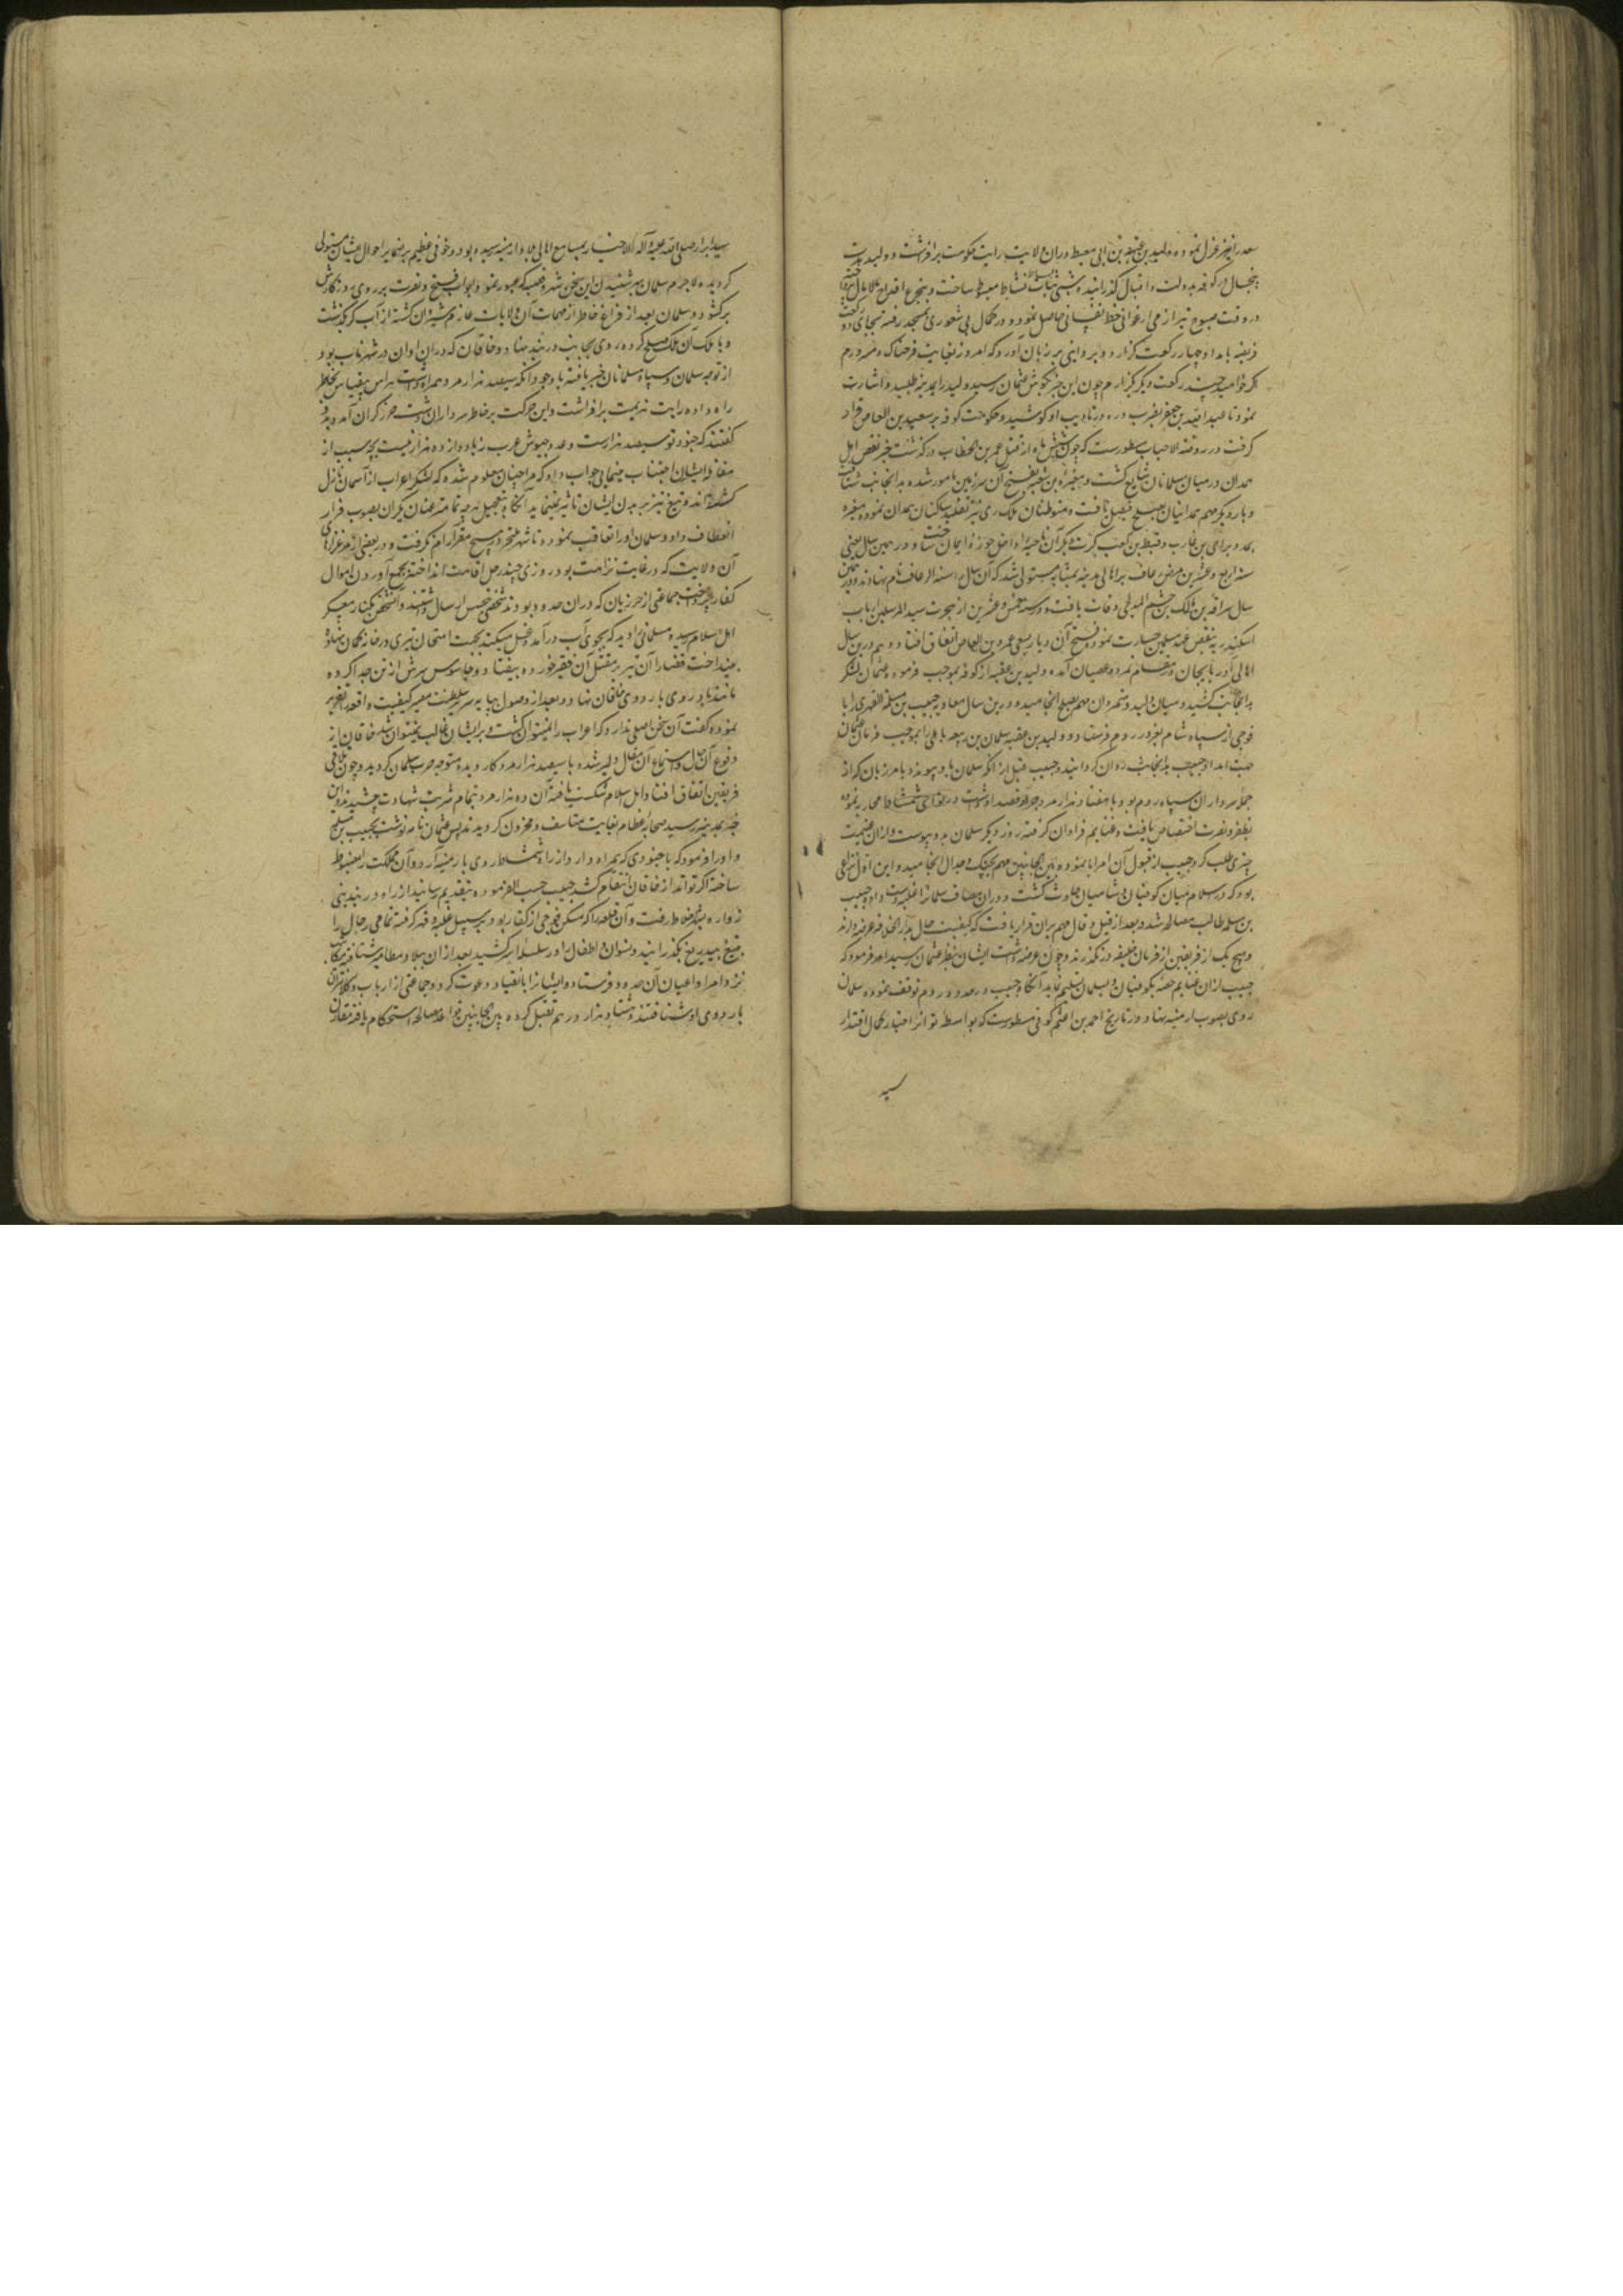 سعد را نیز عزل نموده ولید بن عقبة بن ابی معیط در آن ولایت رایت حکومت برافراشت و ولید مدت
پنجسال در کوفه بدولت و اقبال گذرانیده شبی بساط نشاط مبسوط ساخت و بتجرع اقداح مالامال پرداخته
در وقت صبوح نیز از می ارغوانی حظ نفسانی حاصل نمود و در کمال بی شعوری بمسجد رفته بجای دو رکعت
فریضه بامداد چهار رکعت گزارد و بروایتی بر زبان آورد که امروز بغایت فرحناک و مسرورم
اگر خواهید چند رکعت دیگر گزارم چون این خبر بگوش عثمان رسید ولید را بمدینه طلبید و اشارت
نمود تا عبد الله بن جعفر بضرب دره در تادیب او کوشید و حکومت کوفه بر سعید بن العاص قرار
گرفت در روضة الاحباب مسطورست که چون شش ماه از قتل عمر بن الخطاب درگذشت خبر نقض اهل
همدان در میان مسلمانان شایع گشت و مغیرة بن شعبه بفتح آن سرزمین مامور شده بدانجانب شتافت
و بار دیگر مهم همدانیان بصلح فیصل یافت و متوطنان ملک ری نیز تقلید ساکنان همدان نموده مغیره
بمدد برای بن عازب و قرظة بن کعب کرت دیگر آن ناحیه را داخل حوزه ایمان ساخت و در همین سال یعنی
سنه اربع و عشرین مرض رعاف بر اهالی مدینه بمثابه مستولی شد که آن سال را سنة الرعاف نام نهادند و در همین
سال سراقة بن مالک بن جشعم المدلجی وفات یافت و در سنه خمس و عشرین از هجرت سید المرسلین ارباب
اسکندریه بنقض عهد مسلمین جسارت نموده فتح آن دیار بسعی عمرو بن العاص اتفاق افتاد و هم درین سال
اهالی آذربایجان در مقام تمرد و عصیان آمده ولید بن عقبه از کوفه بموجب فرموده عثمان لشکر
بدانجانب کشید و میان ولید و متمردان مهم بصلح انجامید و درین سال معاویه حبیب بن مسلمة الفهری را با
فوجی از سپاه شام بغزو روم فرستاد و ولید بن عقبه سلمان بن ربیعه باهلی را بموجب فرمان عثمان
جهت امداد حبیب بدانجانب روان گردانید و حبیب قبل از آنکه سلمان باو پیوندد با مرزبان که از
جمله سرداران سپاه روم بود با هفتاد هزار مرد جرار قصد او داشت در نواحی شمشاط محاربه نموده
بظفر و نصرت اختصاص یافت و غنایم فراوان گرفته روز دیگر سلمان بدو پیوست و از آن غنیمت
چیزی طلب کرد حبیب از قبول آن امر ابا نموده بین الجانبین مهم بجنگ و جدال انجامید و این اول نزاعی
بود که در اسلام میان کوفیان و شامیان حادث گشت و در آن مصاف سلمان را غلبه دست داده حبیب
بن مسلمه طالب مصالحه شد و بعد از قیل و قال مهم بران قرار یافت که کیفیت حال بدار الخلافه عرضه دارند
و هیچ یک از فریقین از فرمان خلیفه درنگذرند و چون عرضه داشت ایشان بنظر عثمان رسید امر فرمود که
حبیب از آن غنایم حصه بکوفیان و سلمان تسلیم نماید آنگاه حبیب در حدود روم توقف نموده سلمان
روی بصوب ارمنیه نهاد و در تاریخ احمد بن اعثم کوفی مسطورست که بواسطه تواتر اخبار کمال اقتدار
سید
سید ابرار صلی الله علیه و آله الاخیار بمسامع اهالی بلاد ارمنیه رسیده بود و خوفی عظیم بر ضمایر احوال ایشان مستولی
گردیده لاجرم سلمان بهر شهر و قصبه که عبور نمود ابواب فتح و نصرت بر روی روزگارش
برگشود و سلمان بعد از فراغ خاطر از مهمات آن ولایات عازم شیروان گشته از آب کر گذشت
و با ملک آن ملک صلح کرده روی بجانب دربند نهاد و خاقان که در آن اوان در شهر باب بود
از توجه سلمان و سپاه مسلمانان خبر یافته با وجود آنکه سیصد هزار مرد همراه داشت هراس بیقیاس بخاطر
راه داده رایت هزیمت برافراشت و این حرکت بر خاطر سرداران گران آمده بدو
گفتند که جنود تو سیصد هزارست و عدد جیوش عرب زیاده از ده هزار نیست بچه سبب از
مقاتله ایشان اجتناب مینمایی جواب داد که مرا چنان معلوم شده که لشکر اعراب از آسمان نازل
گشته‌اند و تیغ تیز بر بدن ایشان تاثیر نمینماید آنگاه بتعجیل هرچه تمامتر عنان یکران بصوب فرار
انعطاف داد و سلمان او را تعاقب نموده تا شهر هیچ مقر آرام نگرفت و در بعضی از مرغزارهای
آن ولایت که در غایت نزاهت بود روزی چند رحل اقامت انداخته بجمع آوردن اموال
کفار پرداخت جماعتی از خزریان که در آن حدود بودند شخصی بتجسس ارسال داشتند و آن شخص بکنار معسکر
اهل اسلام رسیده مسلمانی را دید که بجوی آب درآمده غسل میکند بجهت امتحان تیری در خانه کمان نهاده
بینداخت قضا را آن تیر بر مقتل آن فقیر خورده بیفتاد و جاسوس سرش از تن جدا کرده
مانند باد روی باردوی خاقان نهاد و بعد از وصول بپایه سریر سلطنت مصیر کیفیت واقعه تقریر
نموده گفت آن سخن اصلی ندارد که اعراب را نمیتوان کشت و بر ایشان غالب نمیتوان شد خاقان از
وقوع آن حال و استماع آن مقال دلیر شده با سیصد هزار مرد کار دیده متوجه حرب سلمان گردید و چون تلاقی
فریقین اتفاق افتاد اهل اسلام شکست یافته آن ده هزار مرد بتمام شربت شهادت چشیدند و این
خبر بمدینه رسید صحابه عظام بغایت متاسف و محزون گردیدند پس عثمان نامه نوشت بحبیب بن مسلمه
و او را فرمود که با جنودی که همراه دارد از راه شمشاط روی بارمنیه آرد و آن مملکت را مضبوط
ساخته اگر تواند از خاقان انتقام کشد حبیب حسب الفرموده بتقدیم رسانید از راه دربند بنی
زواره بشهر خلاط رفت و آن قلعه را که مسکن فوجی از کفار بود بر سبیل غلبه و قهر گرفته تمامی رجال را
بتیغ بیدریغ بگذرانید و نسوان و اطفال را در سلسله اسر کشید بعد از آن
نزد امرا و اعیان آن حدود فرستاد و ایشانرا بانقیاد دعوت کرد و جماعتی از ارباب و کلانتران
باردوی او شتافتند و هشتاد هزار درهم تقبل کرده بین الجانبین قواعد مصالحه استحکام یافته مقارن